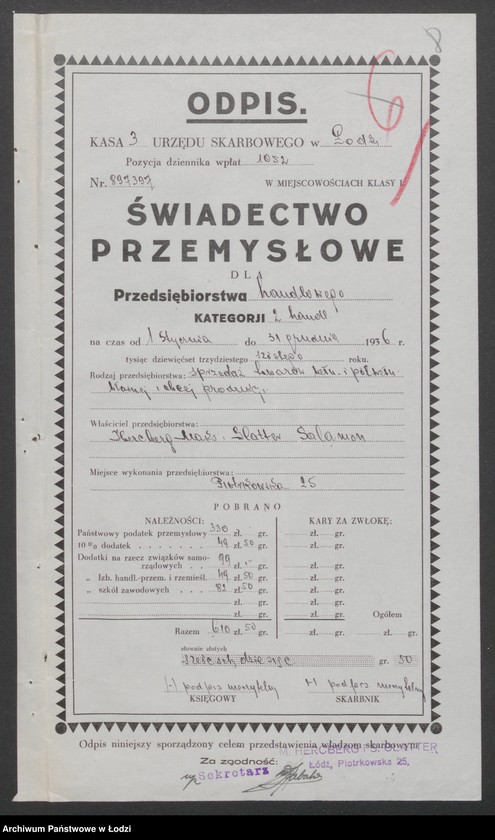 8
6
ODPIS.
KASA 3 URZĘDU SKARBOWEGO w Łodzi
Pozycja dziennika wpłat 1032
Nr. 897397 W MIEJSCOWOŚCIACH KLASY I
ŚWIADECTWO
PRZEMYSŁOWE
DLA
Przedsiębiorstwa handlowego
KATEGORJI 2 handl
na czas od 1 Stycznia do 31 grudnia 1936 r.
tysiąc dziewięćset trzydziestego szóstego roku.
Rodzaj przedsiębiorstwa: sprzedaż towarów wełn. i półwełn.
własnej i obcej produkcji
Właściciel przedsiębiorstwa:
Hercberg Maks i Slatter Salamon
Miejsce wykonania przedsiębiorstwa:
Piotrkowska 25
POBRANO
NALEŻNOŚCI: KARY ZA ZWŁOKĘ:
Państwowy podatek przemysłowy 330 zł. gr. zł. gr.
10 % dodatek 49 zł. 50 gr. zł. gr.
Dodatki na rzecz związków samo-
rządowych 99 zł. gr. zł. gr.
„ Izb. handl.-przem. i rzemieśl. 49 zł. 50 gr. zł. gr.
„ szkół zawodowych 82 zł. 50 gr. zł. gr.
zł. gr. zł. gr.
zł. gr. zł. gr. Ogółem
Razem 610 zł. 50 gr. zł. gr. zł. gr.
słownie złotych
sześćset dziesięć gr. 50
(-) podpis nieczytelny (-) podpis nieczytelny
KSIĘGOWY SKARBNIK
Odpis niniejszy sporządzony celem przedstawienia władzom skarbowym
M. HERCBERG i S. SLATTER
Za zgodność: Łódź, Piotrkowska 25.
Sekretarz
Archiwum Państwowe w Łodzi